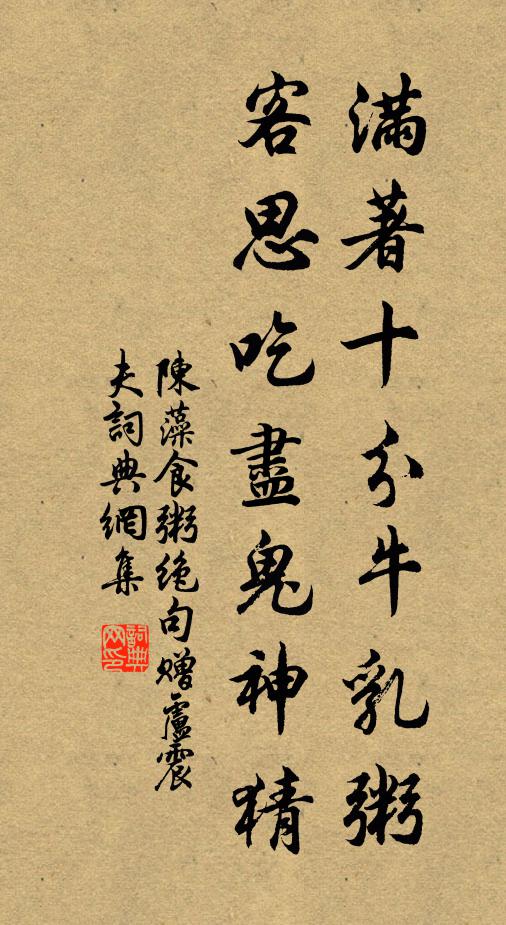 滿著十分牛乳粥
客思吃盡鬼神猜
陳藻食粥絶句贈盧震
夫詞典網集
詞典网印